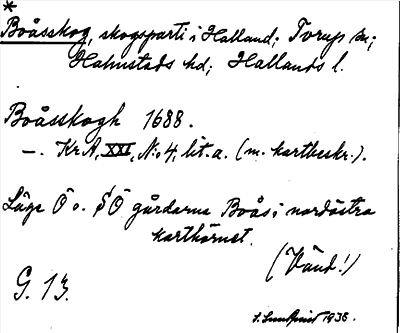 *
Boåsskog, skogsparti i Halland; Torup sn;
Halmstads hd; Hallands l.
Boåsskogh 1688.
—. Kr.A, XXI, N:o 4, lit. a. (m. kartbeskr.).
Läge Ö o. SÖ gårdarna Boås i nordöstra
karthörnet.
(Vänd!)
G. 13.
1938.